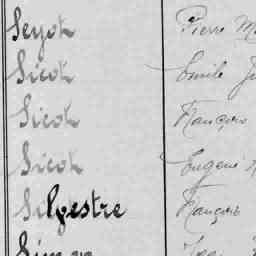 Seyot Pierre M
Sicot Emile Ju
Sicot François
Sicot Eugène
Silvestre François
Simon